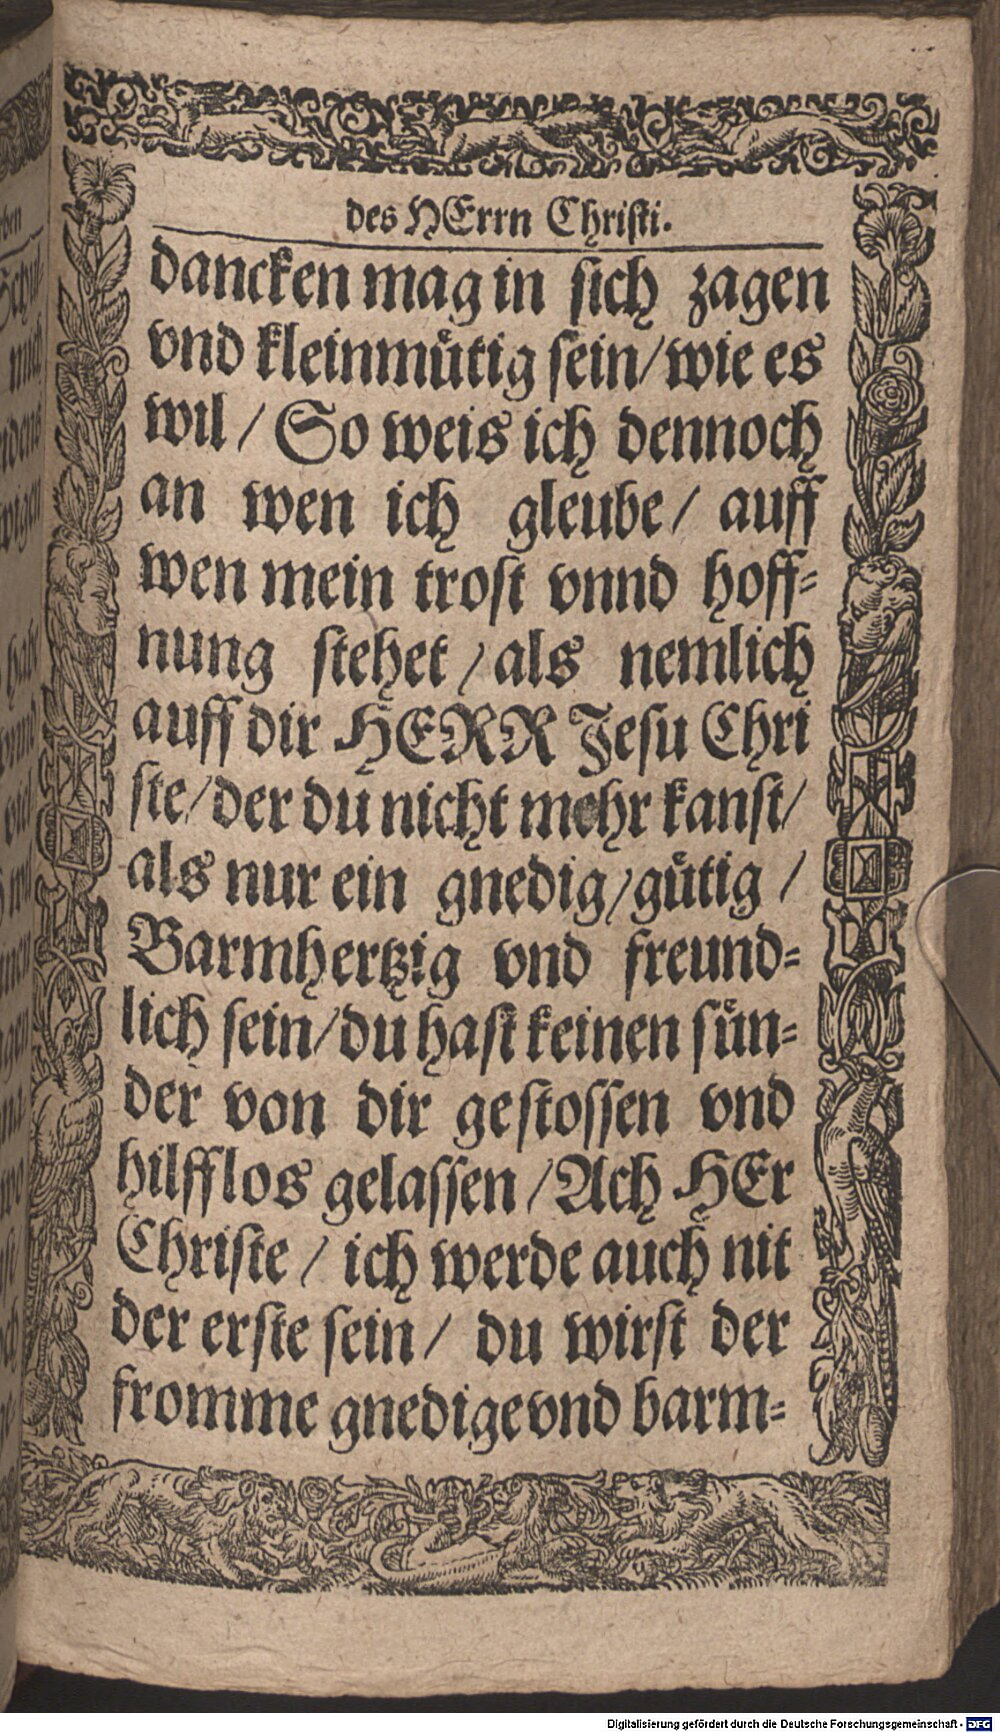 des HErrn Christi.
dancken mag in sich zagen
vnd kleinmuͤtig sein/ wie es
wil / So weis ich dennoch
an wen ich gleube / auff
wen mein trost vnnd hoff-
nung stehet / als nemlich
auff dir HERR Jesu Chri
ste/ der du nicht mehr kanst/
als nur ein gnedig/ guͤtig /
Barmhertzig vnd freund-
lich sein/ du hast keinen suͤn-
der von dir gestossen vnd
hilfflos gelassen / Ach HEr
Christe / ich werde auch nit
der erste sein / du wirst der
fromme gnedige vnd barm-
Digitalisierung gefördert durch die Deutsche Forschungsgemeinschaft - DFG